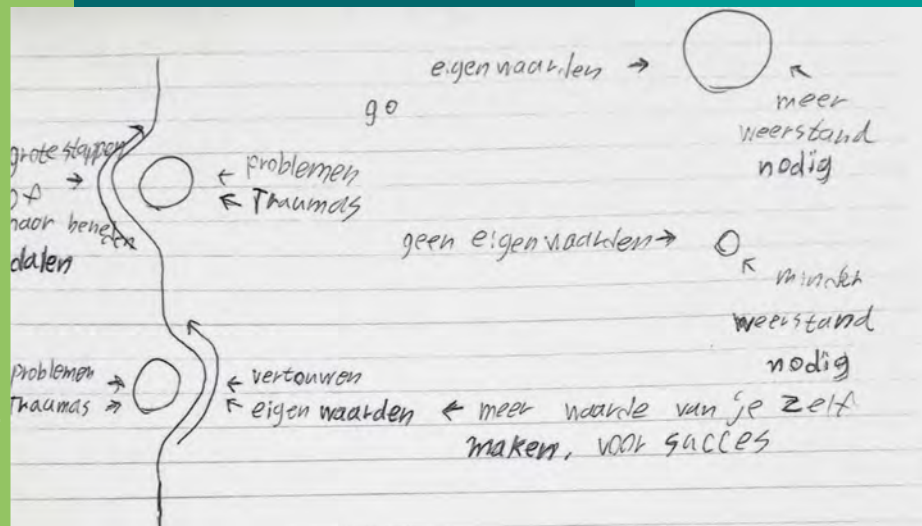 eigenwaarden →
go
meer
weerstand
nodig
grote stappen
of
naar beneden
dalen
← problemen
← Thraumas
geen eigenwaarden →
minder
weerstand
nodig
problemen →
Thraumas →
← vertouwen
← eigen waarden ← meer waarde van je zelf
maken, voor succes